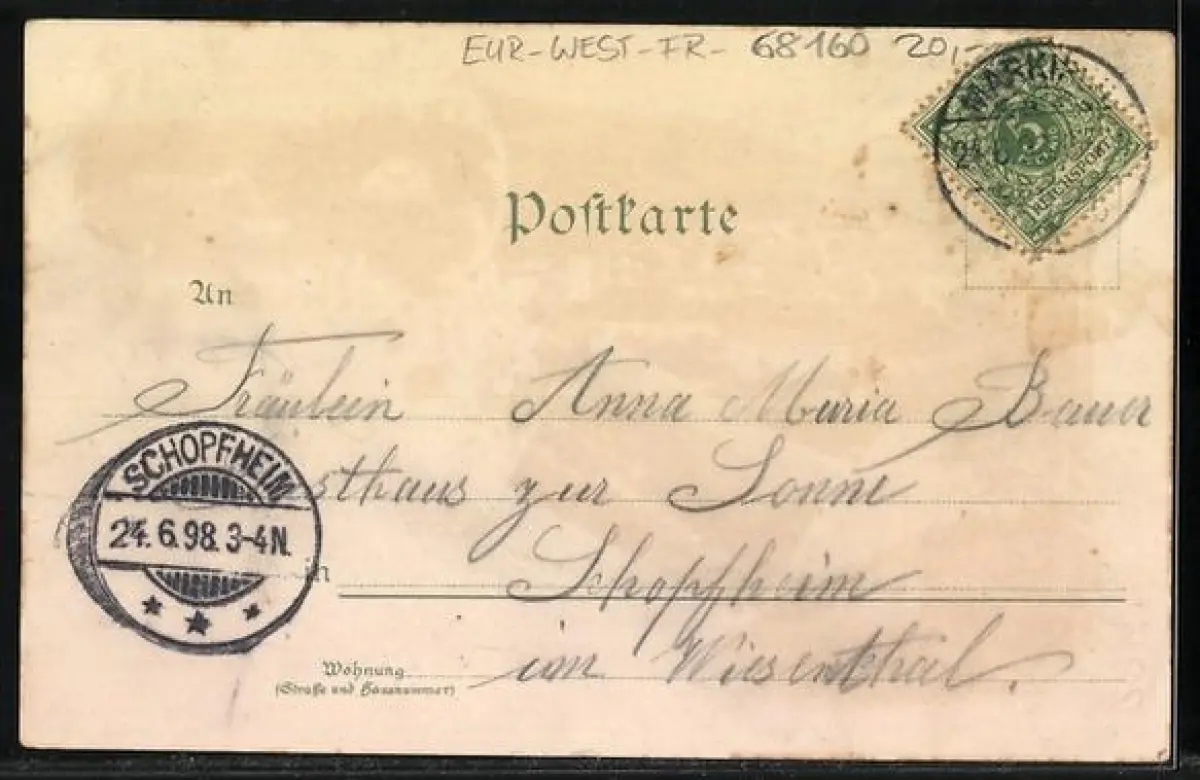 EUR-WEST-FR- 68160 20,-
MARKI
24. 6
5
REICHSPOST
Postkarte
An
Fräulein Anna Maria Bauer
sthaus zur Sonne
SCHOPFHEIM
24.6.98.3-4N.
in Schopfheim
Wohnung
(Straße und Hausnummer)
im Wiesenthal.